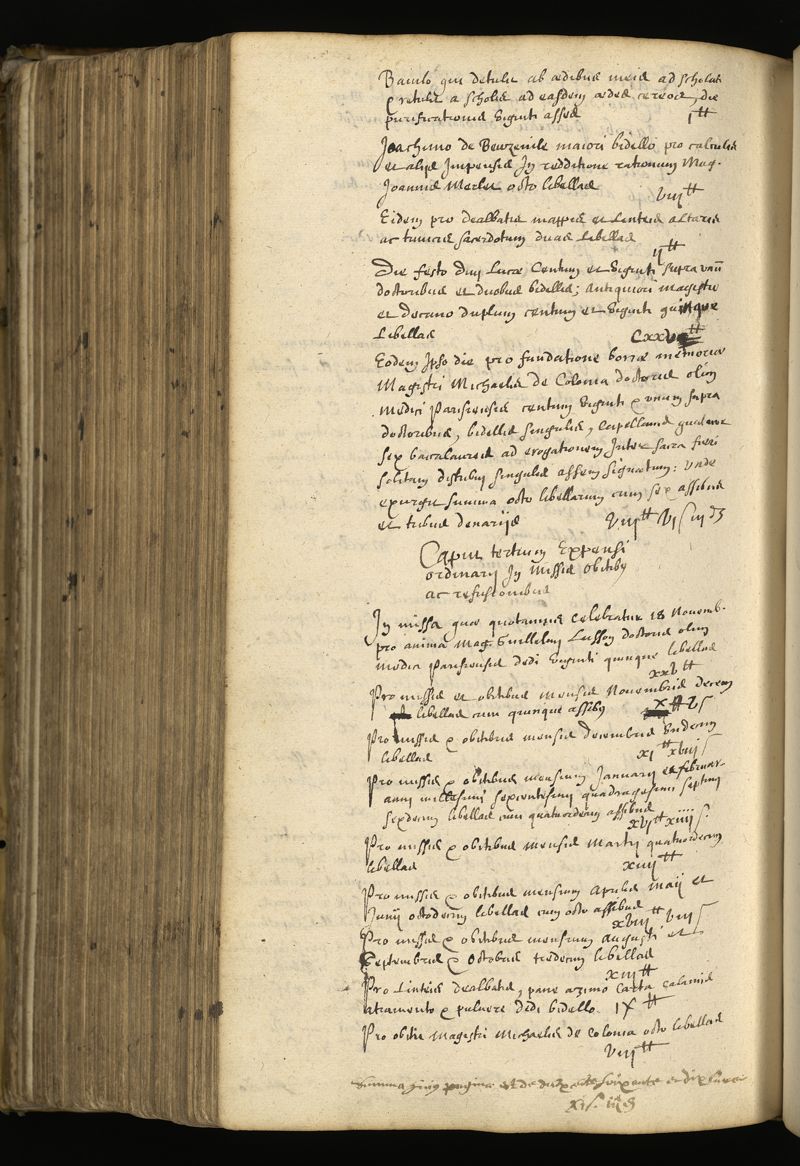 Baiulo qui detulit ab ædibus meis ad scholas
& retulit a scholis ad easdem ædes cereos, die
purificationis viginti asses i ᵗᵗ
Joachimo de Beurzeville maiori bidello pro calculis
et alijs Impensis In redditione rationum Mag.
Joannis Merlet octo libellas viij ᵗᵗ
Eidem pro dealbatis mappis et linteis altaris
ac tunicis sacerdotum duas libellas ij ᵗᵗ
Die festo Divi Lucæ Centum et viginti supra unū
doctoribus et duobus bidellis; antiquiori magistro
et decano duplum centum et viginti quinque
libellas cxxv ᵗᵗ
Eodem Ipso die pro fundatione bonæ memoriæ
Magistri Michaelis de Colonia doctoris olim
Medici Parisiensis centum viginti & unum supra
doctoribus, bidellis singulis, capellanis
sex baccalaureis ad erogationem Inter sacra fieri
solitam distribui singulis assem signatum: unde
exurgit summa octo libellarum cum sex assibus
et tribus denarijs viij ᵗᵗ vi ſ iij d
Caput tertium Expensi
ordinarij In missis obitibꝯ
ac refusionibus
In missa quæ quotannis celebratur 18 Novemb.
pro anima Mag. Guillelmi Lusson doctoris olim
medici Parisiensis dedi viginti quinque libellas
xxv ᵗᵗ
Pro missis et obitibus mensis Novembris decem
libellas cum quinque assibꝯ x ᵗᵗ v ſ
Pro missis & obitibus mensis Decembris undecim
libellas xi ᵗᵗ xviij ſ
Pro missis & obitibus mensium Januarij et februar.
anni millesimi sexcentesimi quadragesimi septimi
sexdecim libellas cum quatuordecim assibus
xvi ᵗᵗ xiiij ſ.
Pro missis & obitibus mensis Martij quatuordecim
libellas xiiij ᵗᵗ
Pro missis & obitibus mensium Aprilis maij et
Junij octodecim libellas cum octo assibus
xviij ᵗᵗ viij ſ
Pro missis & obitibus mensium Augusti et
Septembris & Octobris tredecim libellas
xiij ᵗᵗ
Pro linteis dealbatis, pane azimo carta calamis
atramento & pulvere dedi bidello. ix ᵗᵗ
Pro obitu Magistri Michaelis de Colonia octo libellas
viij ᵗᵗ
Summa pagina est de soixante et dix
xi ſ. iii d